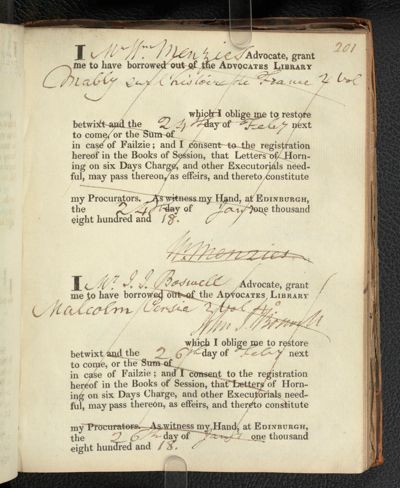 201
I Mr Wm Menzies Advocate, grant
me to have borrowed out of the ADVOCATES LIBRARY
Mably sur l'histoire de France 2 Vol
which I oblige me to restore
betwixt and the 24th day of Feby next
to come, or the Sum of
in case of Failzie; and I consent to the registration
hereof in the Books of Session, that Letters of Horn-
ing on six Days Charge, and other Executorials need-
ful, may pass thereon, as effeirs, and thereto constitute
my Procurators. As witness my Hand, at EDINBURGH,
the 24th day of Jany one thousand
eight hundred and 18.
W. Menzies
I Mr J. J. Boswell Advocate, grant
me to have borrowed out of the ADVOCATES LIBRARY
Malcolm Persia 2 Vol 4o
John J. Boswell
which I oblige me to restore
betwixt and the 26th day of Feby next
to come, or the Sum of
in case of Failzie; and I consent to the registration
hereof in the Books of Session, that Letters of Horn-
ing on six Days Charge, and other Executorials need-
ful, may pass thereon, as effeirs, and thereto constitute
my Procurators. As witness my Hand, at EDINBURGH,
the 26th day of Jany one thousand
eight hundred and 18.